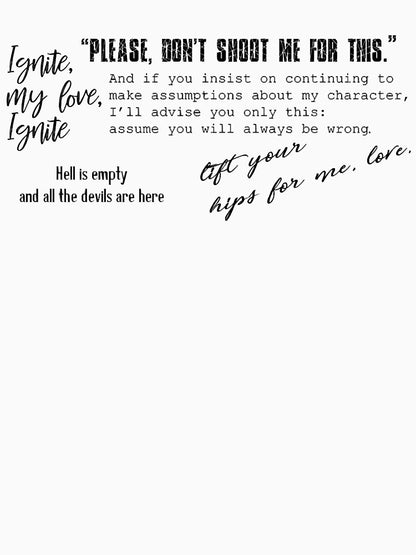 Ignite,
my love,
Ignite
“PLEASE, DON'T SHOOT ME FOR THIS.”
And if you insist on continuing to
make assumptions about my character,
I'll advise you only this:
assume you will always be wrong.
Hell is empty
and all the devils are here
lift your
hips for me, love.